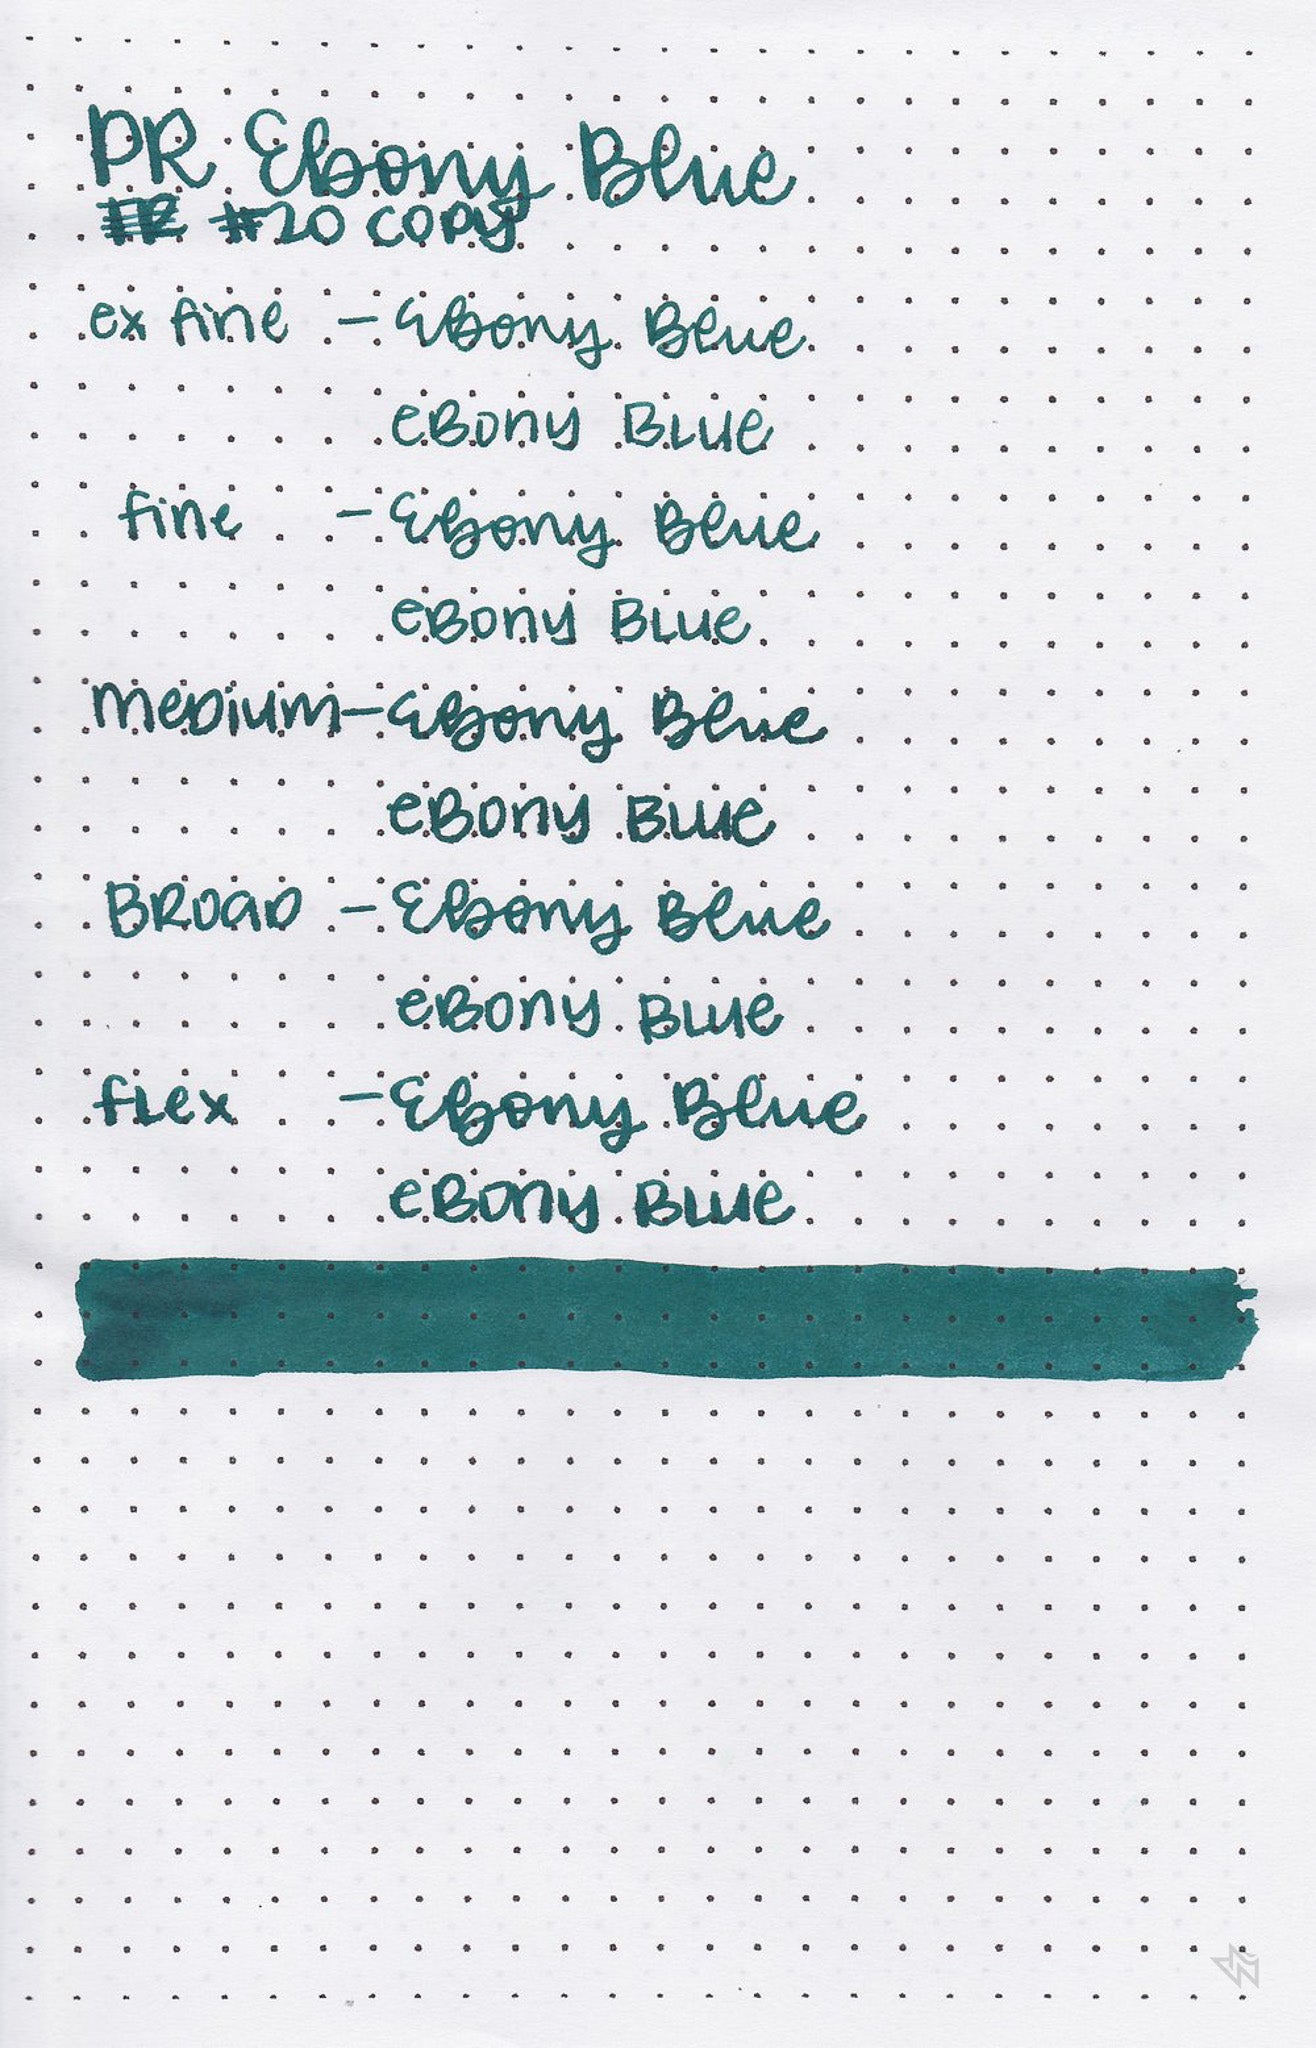 PR Ebony Blue
#20 COPY
ex fine - Ebony Blue
eBony BLUe
fine - Ebony Blue
eBony BLUe
meDium - Ebony Blue
eBony BLUe
BROaD - Ebony Blue
eBony BLUe
fLex - Ebony Blue
eBony BLUe